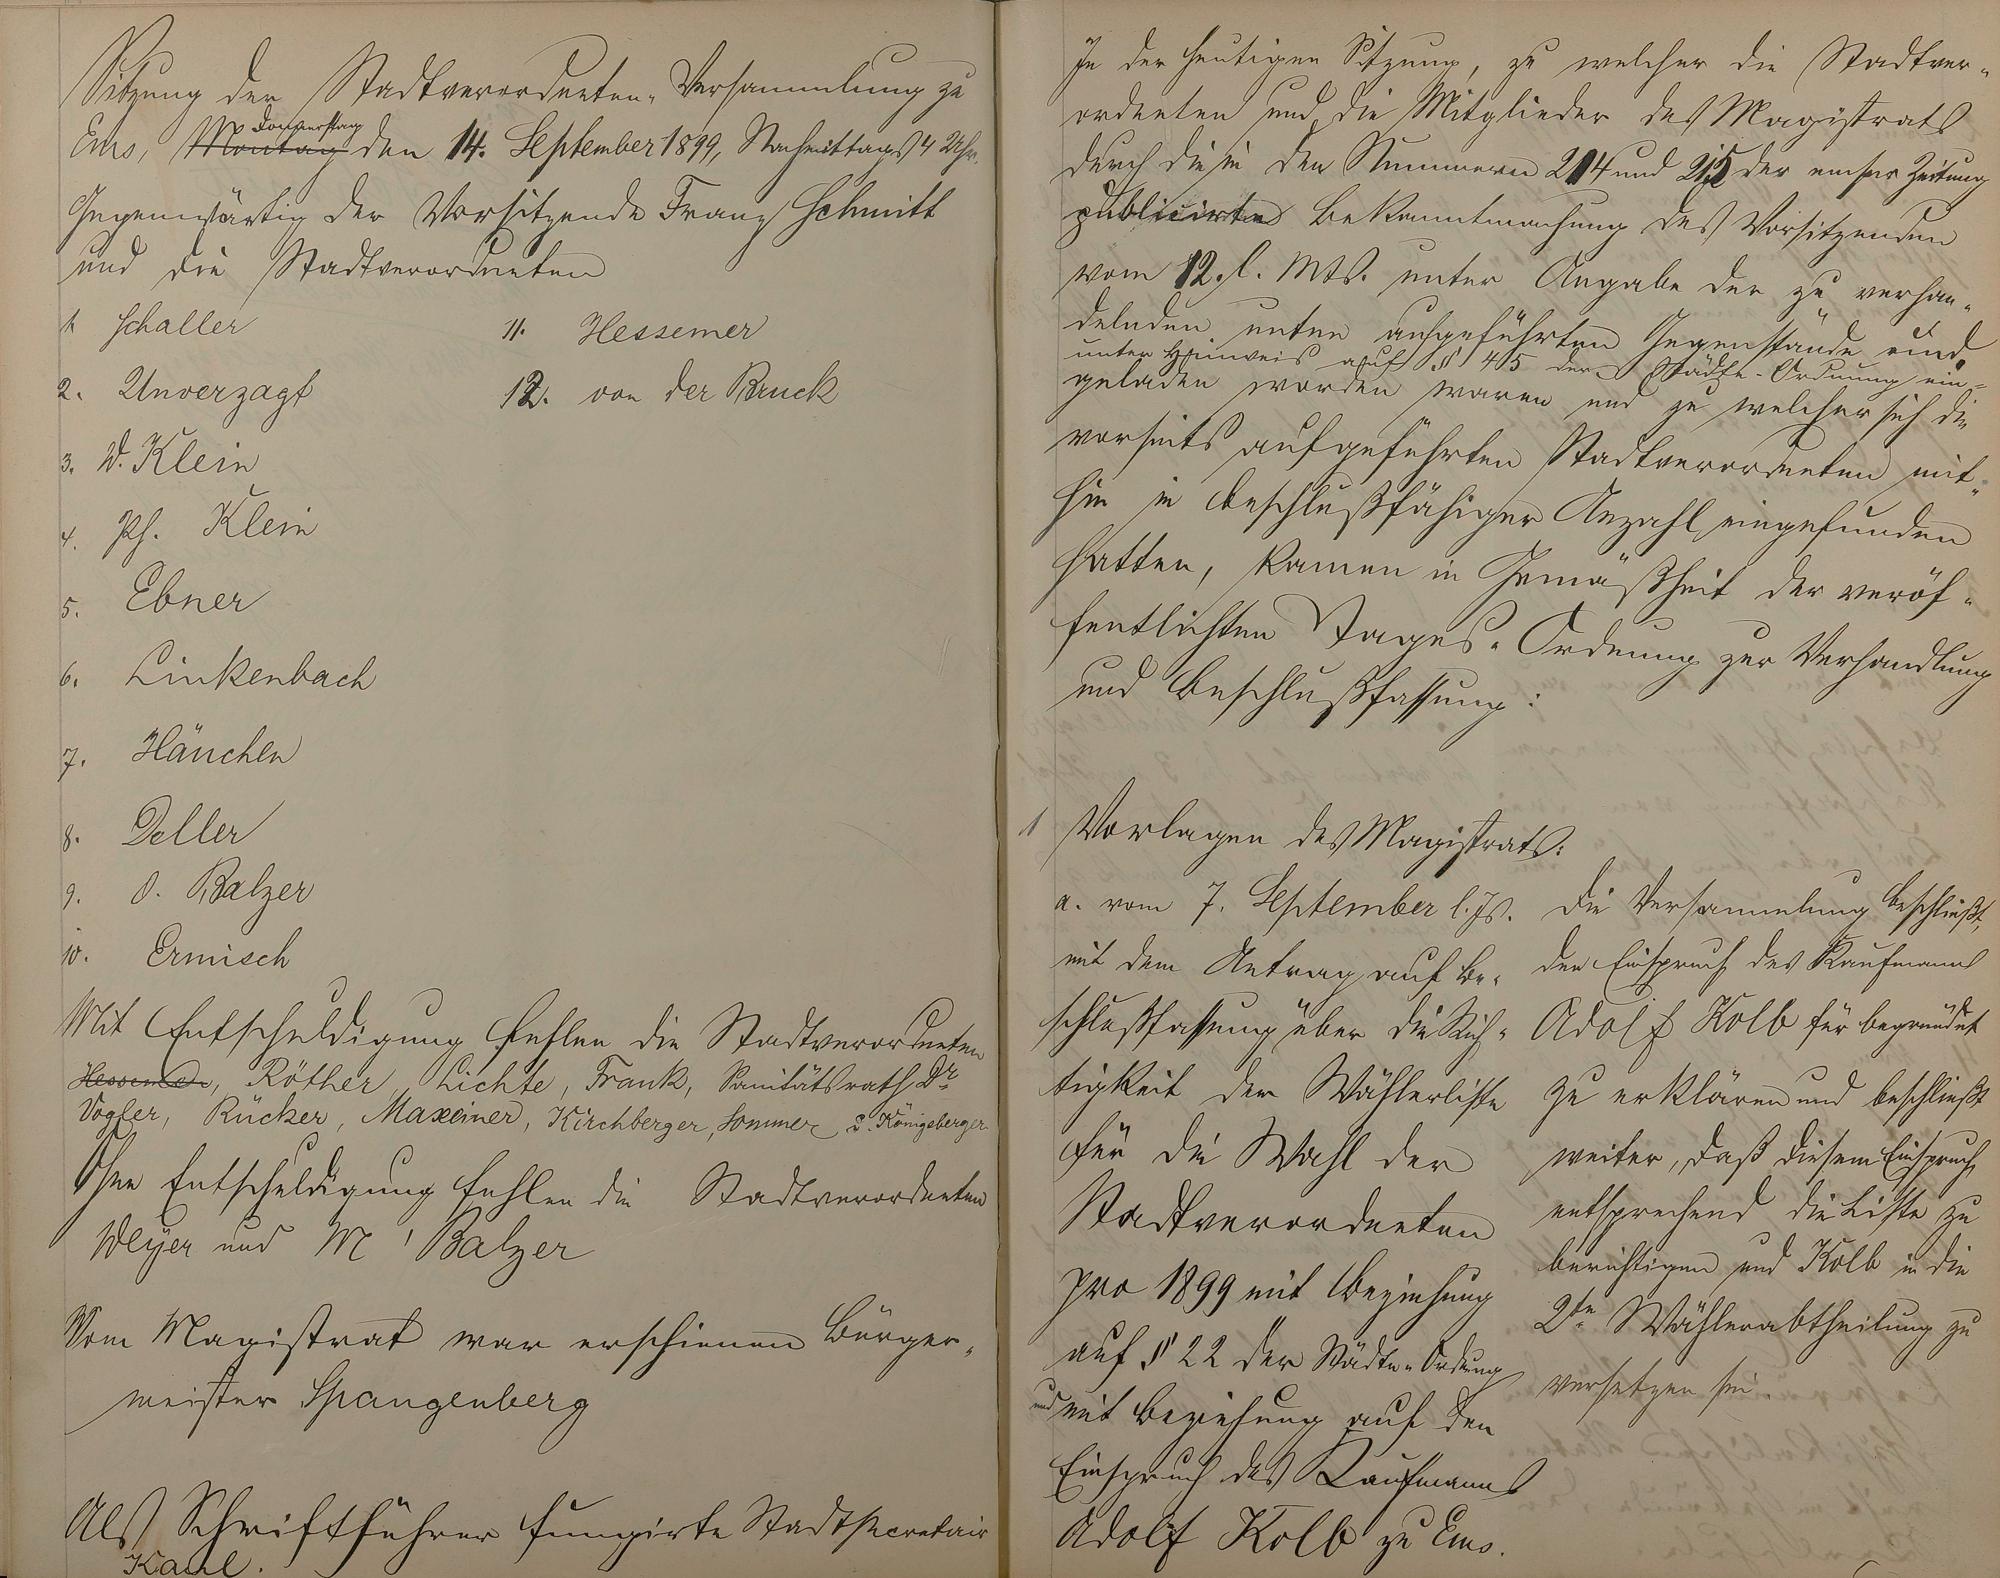 Sitzung der Stadtverordneten-Versammlung zu
Donnerstag
Ems, Montag den 14. September 1899, Nachmittags 4 Uhr.
Gegenwärtig der Vorsitzende Franz Schmitt
und die Stadtverordneten
1 Schaller
2. Unverzagt
3. W. Klein
4. Ph. Klein
5. Ebner
6. Linkenbach
7. Hänchen
8. Deller
9. O. Balzer
10. Ermisch
11. Hessemer
12. von der Bruck
Mit Entschuldigung fehlen die Stadtverordneten
Hessemer, Röther, Lichte, Frank, Sanitätsrath Dr
Vogler, Rücker, Maxeiner, Kirchberger, Sommer u. Königsberger
Ohne Entschuldigung fehlen die Stadtverordneten
Weyer und M. Balzer
Vom Magistrat war erschienen Bürger-
meister Spangenberg
Als Schriftführer fungirte Stadtsecretair
Kaul.
In der heutigen Sitzung, zu welcher die Stadtver-
ordneten und die Mitglieder des Magistrats
durch die in den Nummern 214 und 215 der emser Zeitung
publicirte Bekanntmachung des Vorsitzenden
vom 12. l. Mts. unter Angabe der zu verhan-
delnden unten aufgeführten Gegenstände und
unter Hinweis auf § 45 der Städte-Ordnung ein-
geladen worden waren und zu welcher sich die
vorseits aufgeführten Stadtverordneten mit-
hin in beschlußfähiger Anzahl eingefunden
hatten, kamen in Gemäßheit der veröf-
fentlichten Tages-Ordnung zur Verhandlung
und Beschlußfassung:
1 Vorlagen des Magistrats:
a. vom 7. September l. Js.
mit dem Antrag auf Be-
schlußfassung über die Rich-
tigkeit der Wählerliste
für die Wahl der
Stadtverordneten
pro 1899 mit Beziehung
auf § 22 der Städte-Ordnung
und mit Beziehung auf den
Einspruch des Kaufmanns
Adolf Kolb zu Ems.
Die Versammlung beschließt,
den Einspruch des Kaufmanns
Adolf Kolb für begründet
zu erklären und beschließt
weiter, daß diesem Einspruch
entsprechend die Liste zu
berichtigen und Kolb in die
2te Wählerabtheilung zu
versetzen sei.